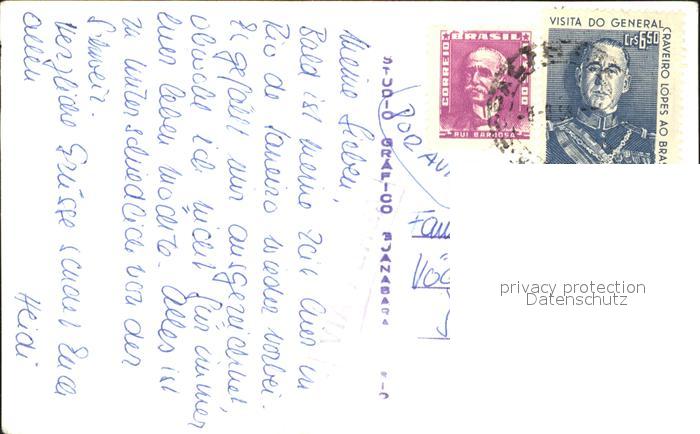 Meine Lieben,
Bald ist meine Zeit hier in
Rio de Janeiro wieder vorbei.
Es gefällt mir ausgezeichnet,
obwohl ich nicht für immer
hier leben möchte. Alles ist
so unterschiedlich von der
Schweiz.
Herzliche Grüsse sendet Euch
allen
Heidi
STUDIO GRÁFICO GUANABARA RIO
BRASIL
CORREIO
RUI BARBOSA
VISITA DO GENERAL
CRAVEIRO LOPES AO BRAS
Cr$ 6,50
Fam
privacy protection
Datenschutz